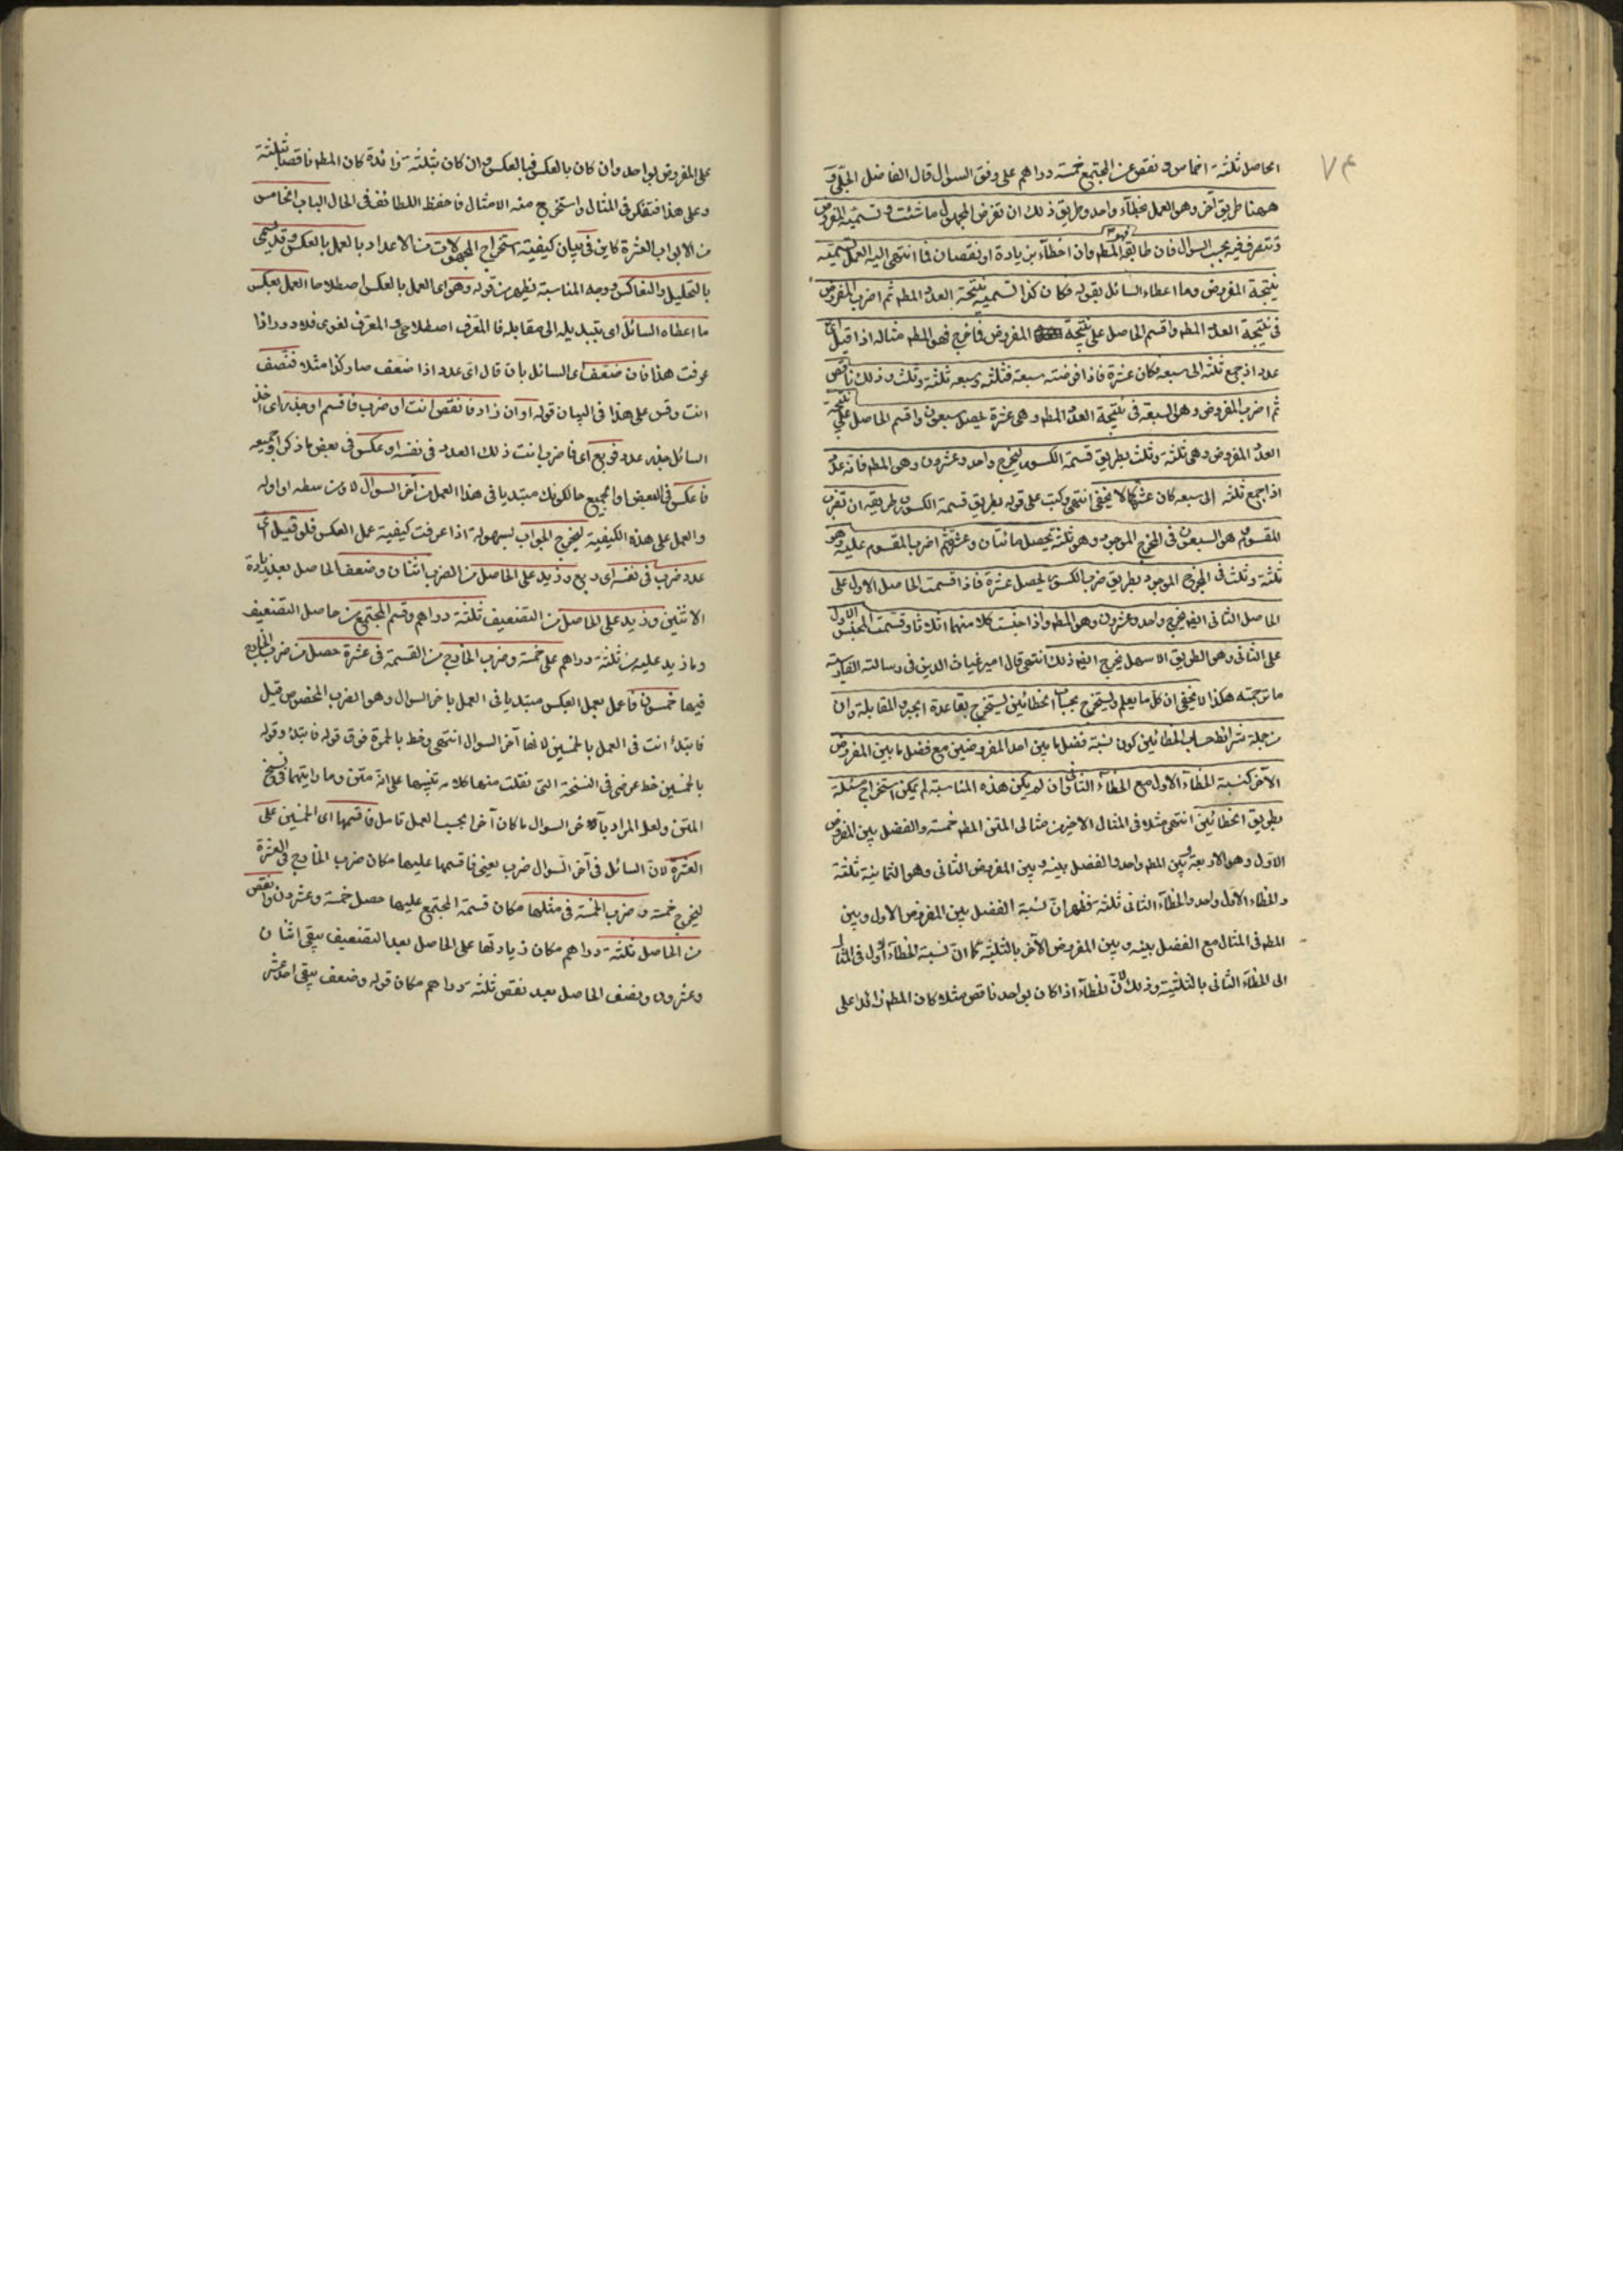 ٧٤
الحاصل ثلثة اخماس ونقص عن المجتمع خمسة دراهم على وفق السؤال قال الفاضل
ههنا طريق آخر وهو العمل بخطاء واحد وطريق ذلك ان تفرض المجهول ما شئت وتسميه المفروض
وتتصرف فيه بحسب السؤال فان طابق فهو المط وان اخطاء بزيادة او نقصان فما انتهى اليه العمل تسميه
نتيجة المفروض وما اعطاء السائل بقوله فكان كذا تسميه نتيجة العدد المط ثم اضرب المفروض
فى نتيجة العدد المط واقسم الحاصل على نتيجة المفروض فما خرج فهو المط مثاله اذا قيل اى
عدد اذ جمع ثلثه الى سبعه فكان عشرة فاذا فرضته سبعة فثلثه وسبعه ثلثة وثلث وذلك ناقص
ثم اضرب المفروض وهو السبعة فى نتيجة العدد المط وهى عشرة يحصل سبعون واقسم الحاصل على نتيجة
العدد المفروض وهى ثلثة وثلث بطريق قسمة الكسور ليخرج واحد وعشرون وهى المط فانه عدد
اذا جمع ثلثه الى سبعه كان عشرة كما لا يخفى انتهى وكتب على قوله بطريق قسمة الكسور طريقه ان تضرب
المقسوم هو السبعون فى المخرج الموجود وهو ثلثة يحصل مائتان وعشرة ثم اضرب المقسوم عليه وهو
ثلثة وثلث فى المخرج الموجود بطريق ضرب الكسور يحصل عشرة فاذا قسمت الحاصل الاول على
الحاصل الثانى ايضا يخرج واحد وعشرون وهو المط واذا جنست كلا منهما اثلاثا وقسمت المجنس الاول
على الثانى وهو الطريق الاسهل يخرج ايضا ذلك انتهى قال امير غياث الدين فى رسالته الفارسية
ما ترجمته هكذا لا يخفى ان كل ما يعلم ويستخرج بحساب الخطائين يستخرج بقاعدة الجبر والمقابلة وان
من جملة شرائط حساب الخطائين كون نسبة فضل ما بين احد المفروضين مع فضل ما بين المفروض
الآخر كنسبة الخطاء الاول مع الخطاء الثانى وان لم يكن هذه المناسبة لم يمكن استخراج مسئلة
بطريق الخطائين انتهى مثلا فى المثال الاخير من مثالى المتن المط خمسة والفضل بين المفروض
الاول وهو الاربعة وبين المط واحد والفضل بينه وبين المفروض الثانى وهو الثمانية ثلثة
والخطاء الاول واحد والخطاء الثانى ثلثة فظهر ان نسبة الفضل بين المفروض الاول وبين
المط فى المثال مع الفضل بينه وبين المفروض الآخر بالثلثية كما ان نسبة الخطاء الاول فى المثال
الى الخطاء الثانى بالثلثية وذلك لان الخطاء اذا كان بواحد ناقص مثلا كان المط زائدا على
على المفروض بواحد وان كان بالعكس فبالعكس وان كان بثلثة زائدة كان المط ناقصا بثلثة
وعلى هذا فتفكر فى المثال واستخرج منه الامثال فاحفظ اللطائف فى الحال الباب الخامس
من الابواب العشرة كاين فى بيان كيفية استخراج المجهولات من الاعداد بالعمل بالعكس وقد يسمى
بالتحليل والتعاكس ووجه المناسبة يظهر من قوله وهو اى العمل بالعكس اصطلاحا العمل بعكس
ما اعطاه السائل اى بتبديله الى مقابله فالمعرف اصطلاحى والمعرف لغوى فلا دور اذا
عرفت هذا فان ضعف اى السائل بان قال اى عدد اذا ضعف صار كذا مثلا فنصف
انت وقس على هذا فى البيان قوله او ان زاد فانقص انت او ضرب فاقسم او جذر اى اخذ
السائل جذر عدد فربع اى فاضرب انت ذلك العدد فى نفسه او عكس فى بعض ما ذكر او جميعه
فاعكس فى البعض او الجميع حالكونك مبتديا فى هذا العمل من آخر السؤال لا من وسطه او اوله
والعمل على هذه الكيفية ليخرج الجواب بسهولة اذا عرفت كيفية عمل العكس فلو قيل اى
عدد ضرب فى نفسه اى ربع وزيد على الحاصل من الضرب اثنان وضعف الحاصل بعد زيادة
الاثنين وزيد على الحاصل من التضعيف ثلثة دراهم وقسم المجتمع من حاصل التضعيف
وما زيد عليه من ثلثة دراهم على خمسة وضرب الخارج من القسمة فى عشرة حصل من ضرب الخارج
فيها خمسون فاعمل بعمل العكس مبتديا فى العمل باخر السؤال وهو الضرب المخصوص قيل
فابتدأ انت فى العمل بالخمسين لانها آخر السؤال انتهى وخط بالحمرة فوق قوله فابتدأ وقوله
بالخمسين خط عرضى فى النسخة التى نقلت منها كلامه تنبيها على انه متن وما رايتهما فى نسخ
المتن ولعل المراد بآخر السؤال ما كان آخرا بحسب العمل تامل فاقسمها اى الخمسين على
العشرة لان السائل فى آخر السؤال ضرب يعنى فاقسمها عليها مكان ضرب الخارج فى العشرة
ليخرج خمسة وضرب الخمسة فى مثلها مكان قسمة المجتمع عليها حصل خمسة وعشرون وانقص
من الحاصل ثلثة دراهم مكان زيادتها على الحاصل بعد التضعيف يبقى اثنان
وعشرون ونصف الحاصل بعد نقص ثلثة دراهم مكان قوله وضعف يبقى احد عشر